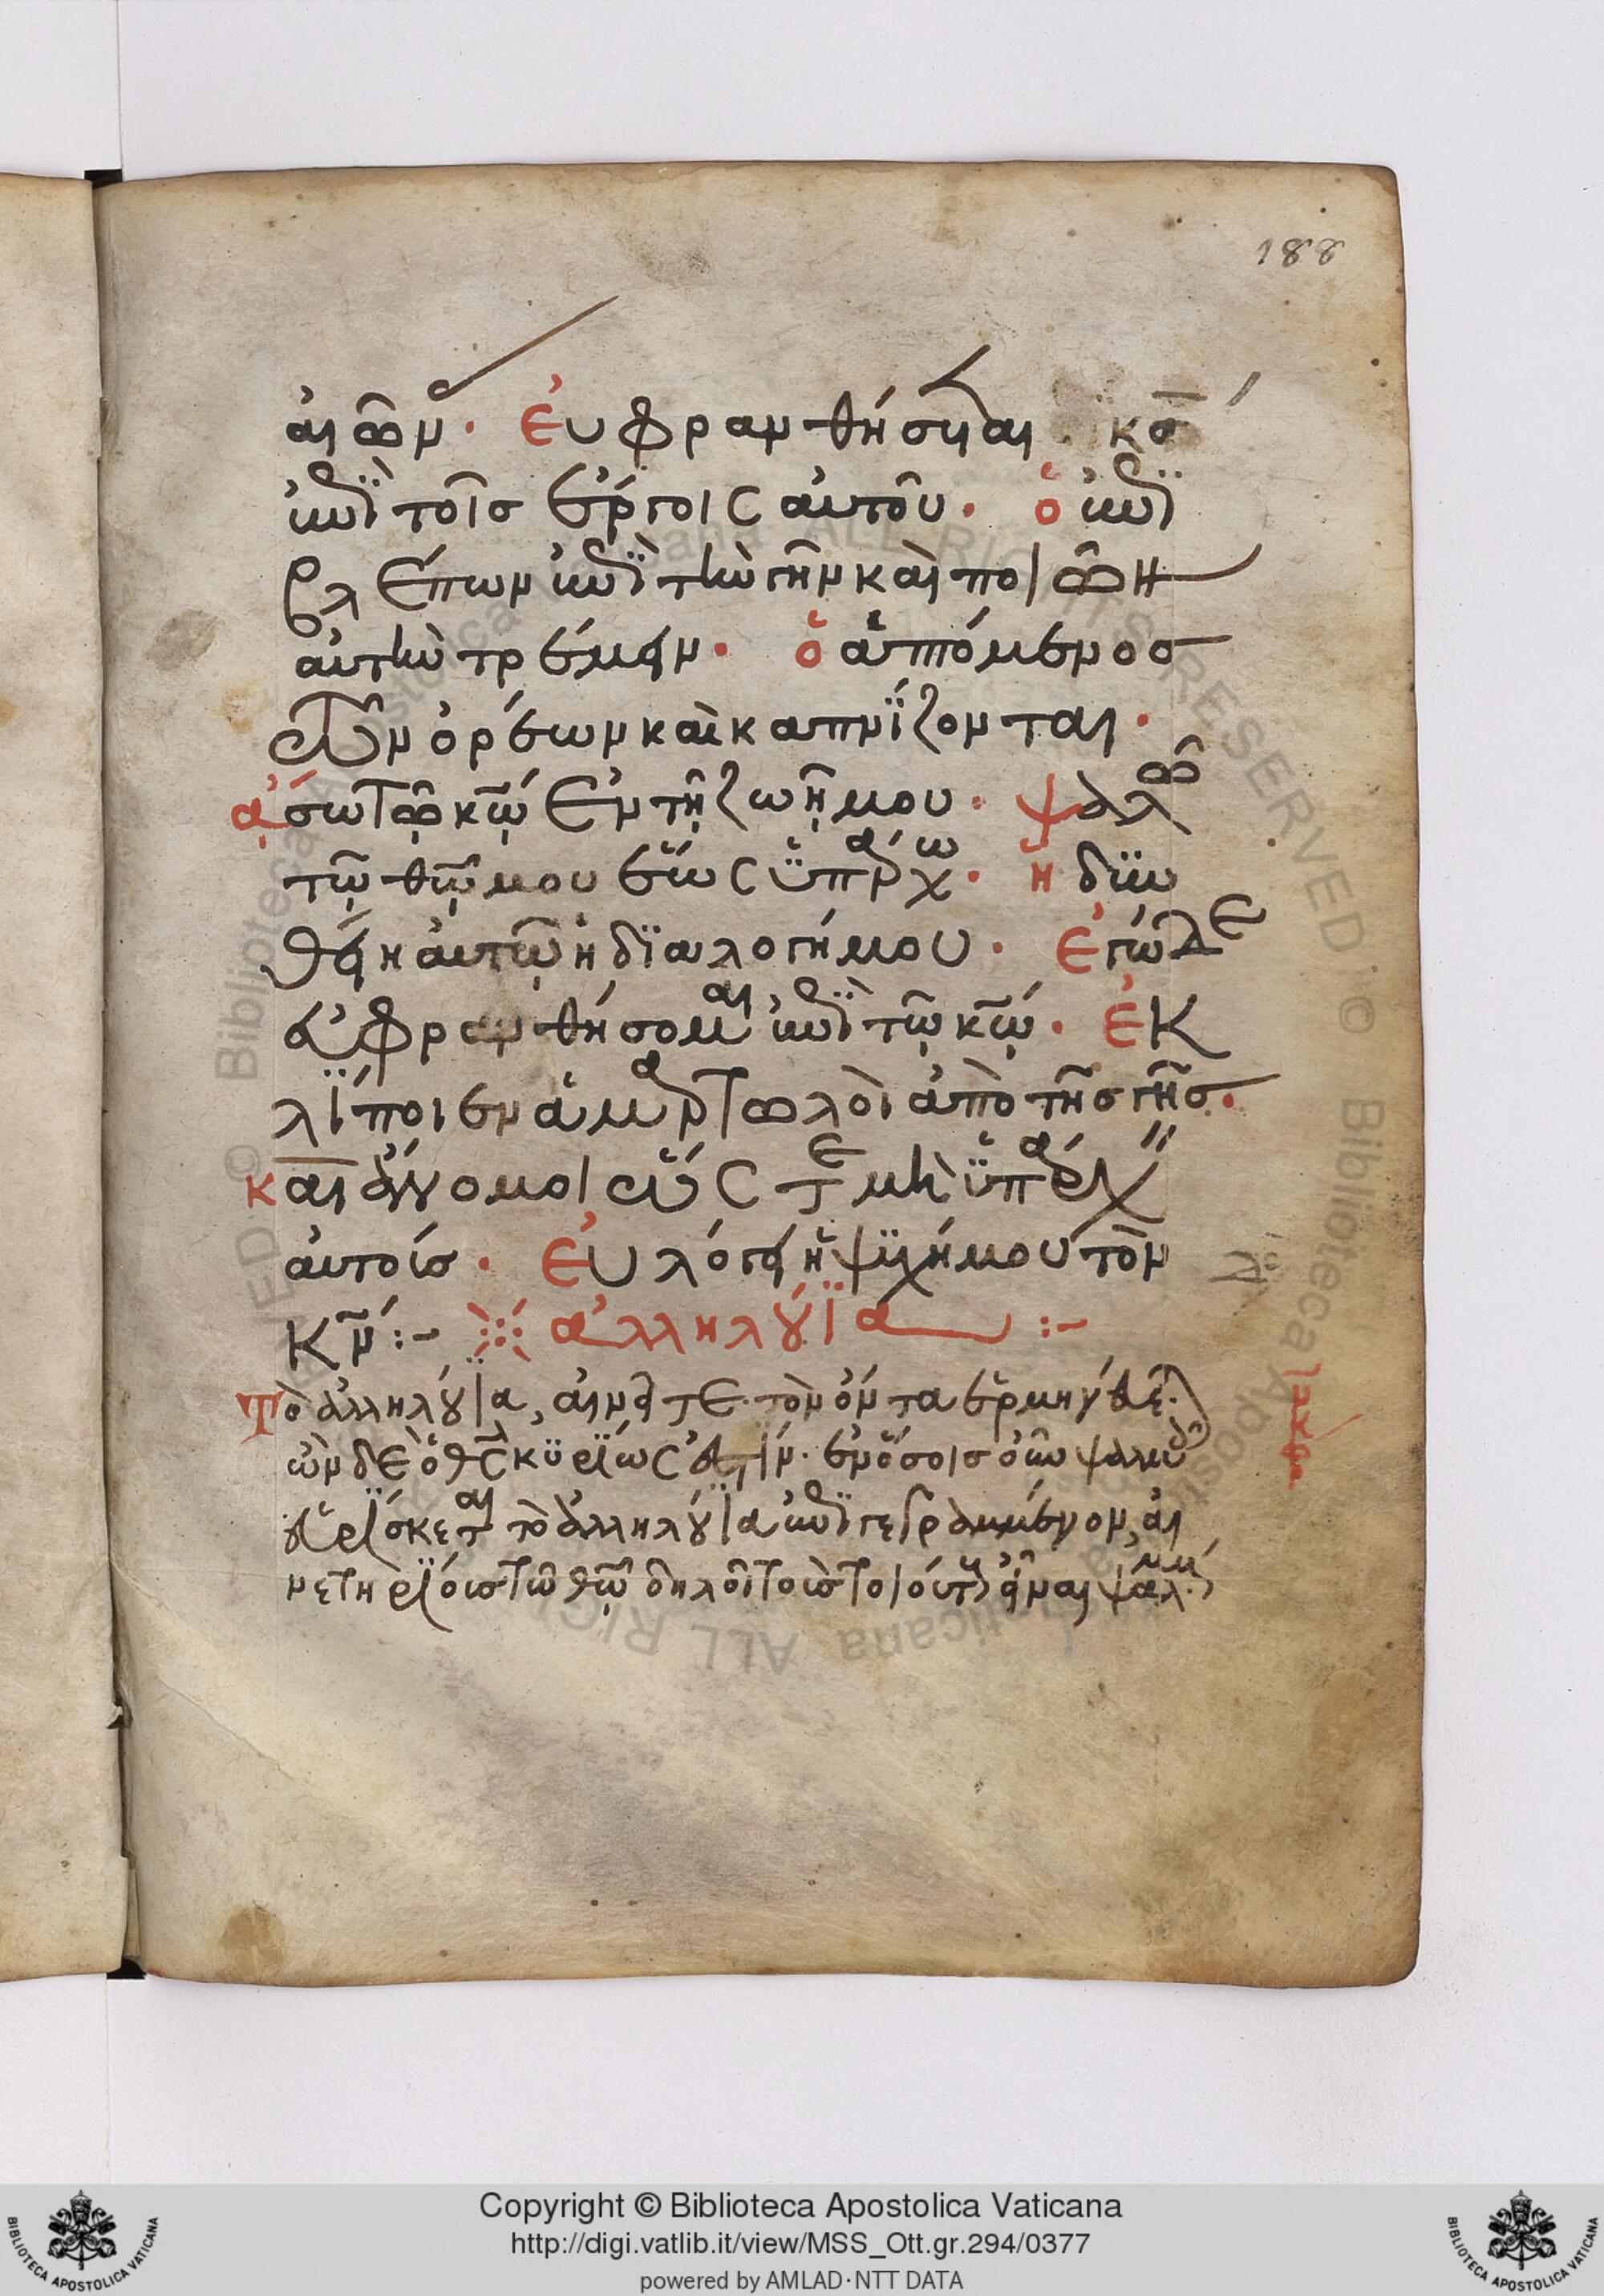 188
αἰῶν· εὐφρανθήσεται κσ
ἐπὶ τοῖσ ἔργοις αὐτοῦ· ὁ ἐπι
βλέπων ἐπὶ τὴν γῆν καὶ ποιῶν
αὐτὴν τρέμειν· ὁ ἁπτόμενοσ
τῶν ὀρέων καὶ καπνίζονται·
ἄσω τῷ κῷ ἐν τῇ ζωῇ μου· ψαλῶ
τῷ θῷ μου ἕως ὑπάρχω· ἡδυν
θείη αὐτῷ ἡ διαλογή μου· ἐγὼ δὲ
εὐφρανθήσομαι ἐπὶ τῷ κῷ· ἐκ
λίποιεν ἁμαρτωλοὶ ἀπὸ τῆσ γῆσ·
καὶ ἄνομοι ὥς τε μὴ ὑπάρχειν
αὐτούσ· εὐλόγει ἡ ψυχή μου τὸν
κν :- ἀλληλούϊα :-
Τὸ ἀλληλούϊα, αἰνεῖτε τὸν ὄντα ἑρμηνεύε
ὢν δὲ ὁ θς κυρίως ἐστίν· ἐν ὅσοισ οὖν ψαλμοῖς
εὑρίσκεται τὸ ἀλληλούϊα ἐπιγεγραμμένον, αἰ
νετηρίουσ τῷ θῷ δηλοῖ τοὺσ τοιούτους εἶναι ψαλμούς
Copyright © Biblioteca Apostolica Vaticana
http://digi.vatlib.it/view/MSS_Ott.gr.294/0377
powered by AMLAD·NTT DATA
BIBLIOTECA APOSTOLICA VATICANA
BIBLIOTECA APOSTOLICA VATICANA